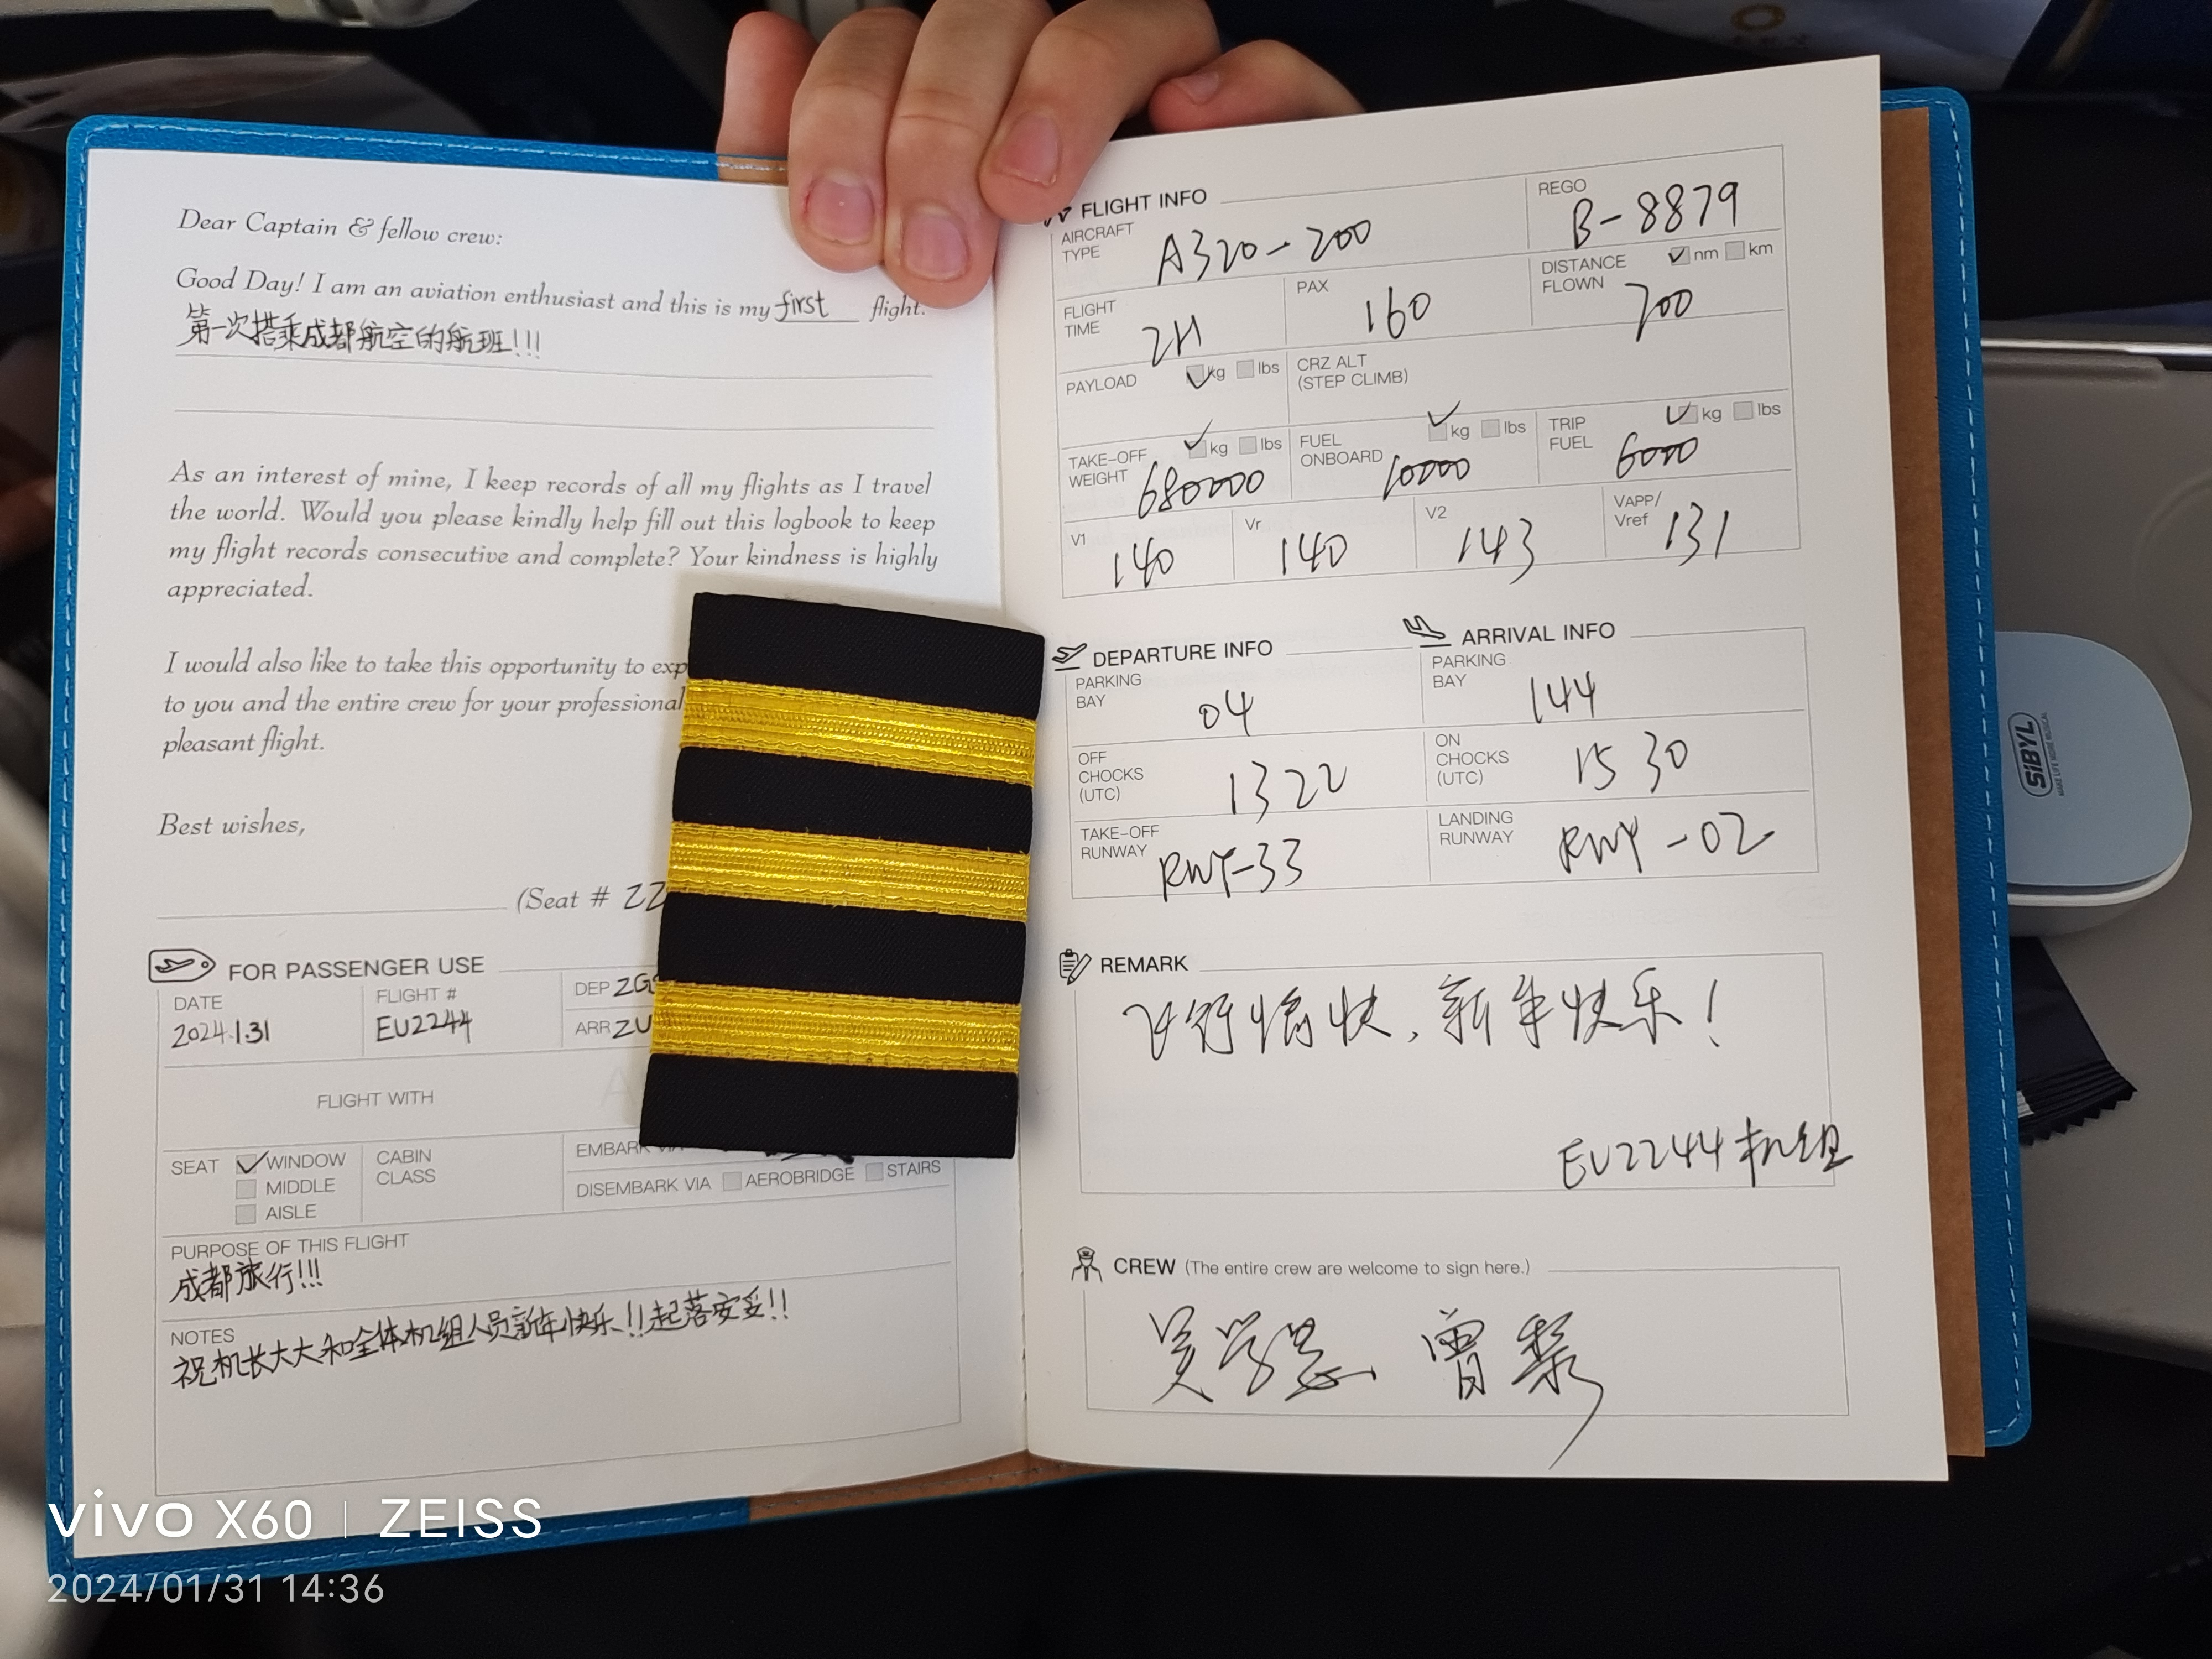 Dear Captain & fellow crew:
Good Day! I am an aviation enthusiast and this is my first flight.
第一次搭乘成都航空的航班!!!
As an interest of mine, I keep records of all my flights as I travel
the world. Would you please kindly help fill out this logbook to keep
my flight records consecutive and complete? Your kindness is highly
appreciated.
I would also like to take this opportunity to exp
to you and the entire crew for your professional
pleasant flight.
Best wishes,
(Seat # 22
FOR PASSENGER USE
DATE
2024.1.31
FLIGHT #
EU2244
DEP ZG
ARR ZU
FLIGHT WITH
SEAT WINDOW
MIDDLE
AISLE
CABIN
CLASS
EMBARK VIA
DISEMBARK VIA AEROBRIDGE STAIRS
PURPOSE OF THIS FLIGHT
成都旅行!!!
NOTES
祝机长大大和全体机组人员新年快乐!!起落安妥!!
FLIGHT INFO
AIRCRAFT
TYPE
A320-200
REGO
B-8879
FLIGHT
TIME
2H
PAX
160
DISTANCE
FLOWN
nm km
700
PAYLOAD kg lbs
CRZ ALT
(STEP CLIMB)
TAKE-OFF
WEIGHT
kg lbs
680000
FUEL
ONBOARD
kg lbs
10000
TRIP
FUEL
kg lbs
6000
V1
140
Vr
140
V2
143
VAPP/
Vref
131
DEPARTURE INFO
PARKING
BAY
04
OFF
CHOCKS
(UTC)
1322
TAKE-OFF
RUNWAY
RWY-33
ARRIVAL INFO
PARKING
BAY
144
ON
CHOCKS
(UTC)
15 30
LANDING
RUNWAY
RWY-02
REMARK
飞行愉快,新年快乐!
EU2244机组
CREW (The entire crew are welcome to sign here.)
曾
SiBYL
MAKE LIFE MORE MUSICAL
vivo X60 | ZEISS
2024/01/31 14:36